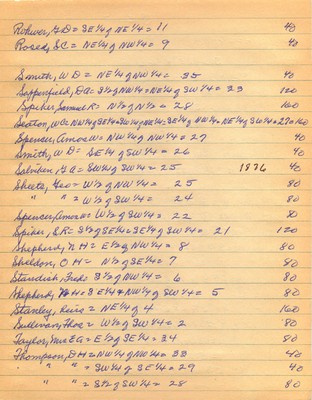 Rohwer, G D = SE¼ of NE¼ = 11 40
Rosed, S C = NE¼ of NW¼ = 9 40
Smith, W D = NE¼ of NW¼ = 35 40
Sappenfield, DA = S½ of NW¼ = NE¼ of SW¼ = 23 120
Spiker Samuel R = N½ of N½ = 28 160
27 160
Spencer, Amos W = NW¼ of NW¼ = 27 40
Smith, W D = SE¼ of SW¼ = 26 40
G A = SW¼ of SW¼ = 25 1936 40
Sheets, Geo = W½ of NW¼ = 25 80
" " = W½ of SW¼ = 24 80
Spencer, Amos W = W½ of SW¼ = 22 80
Spiker, S R = S½ of SE¼ = SE¼ of SW¼ = 21 120
Shepherd, N H = E½ of NW¼ = 8 80
Sheldon, O H = N½ of SE¼ = 7 80
Standish, Fred = S½ of NW¼ = 6 80
Shepherd, N H = SE¼ of NW¼ of SW¼ = 5 80
Stanley, = NE¼ of 4 160
Sullivan, Thos = W½ of SW¼ = 2 80
Taylor, Mrs E A = E½ of SE¼ = 34 80
Thompson, D H = NW¼ of NW¼ = 33 40
" " = SW¼ of SE¼ = 29 40
" " = S½ of SW¼ = 28 80